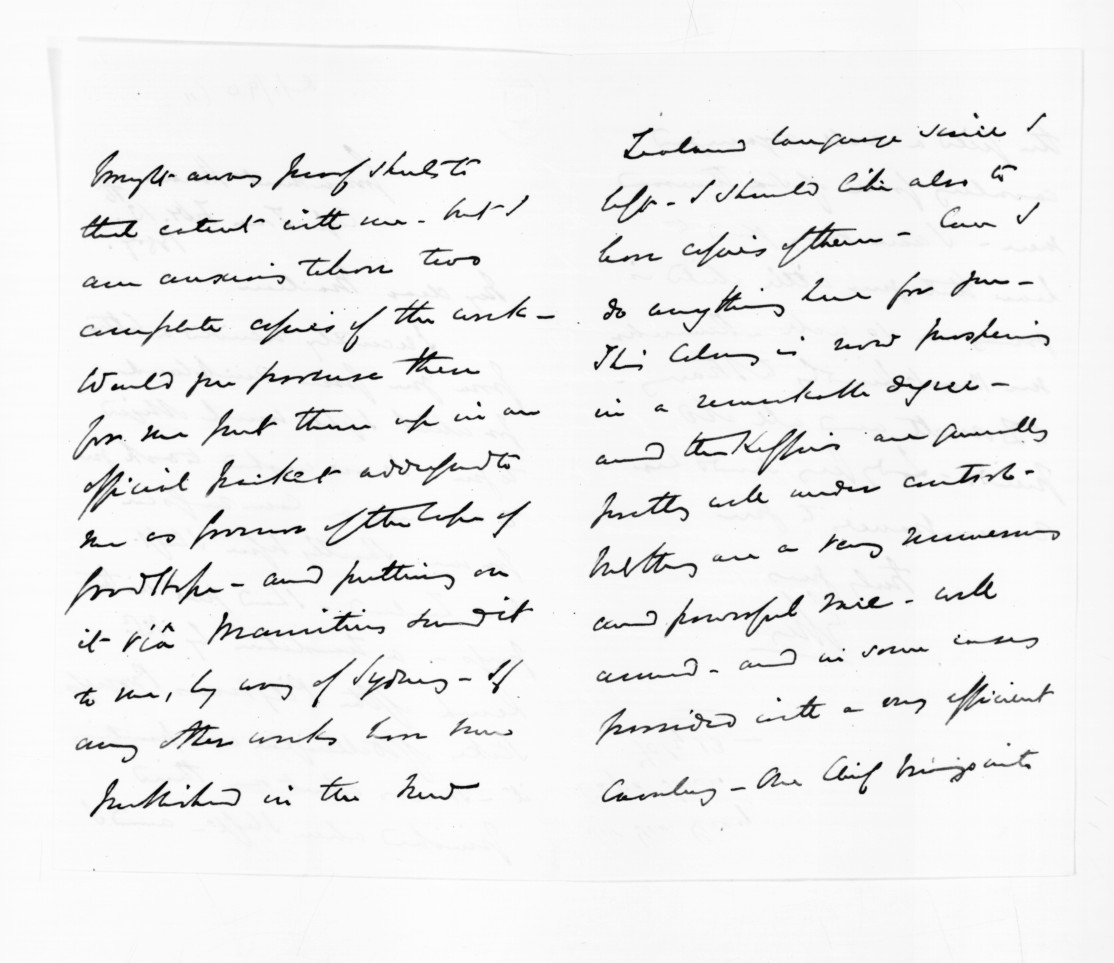 brought away proof sheets to
that extent with me - but I
am anxious to have two
complete copies of the work -
Would you procure these
for me put them up in an
official packet addressed to
me as Governor of the Cape of
Good Hope - and putting on
it viâ Mauritius send it
to me, by way of Sydney - If
any other works have been
published in the New
Zealand language since I
left - I should like also to
have copies of them - Can I
do anything here for you -
This Colony is now prospering
in a remarkable degree -
and the Kaffirs are generally
pretty well under control -
but they are a very numerous
and powerful race - well
armed - and in some cases
provided with a very efficient
Cavalry - One Chief brings into